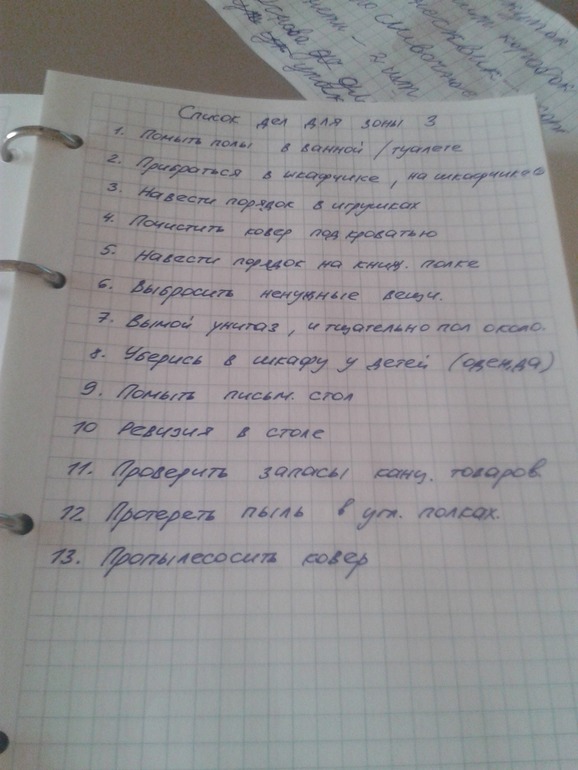 кипят
коробок
москвик
сливочное
2 шт
упак
Список дел для зоны 3
1. Помыть полы в ванной / туалете
2. Прибраться в шкафчике, на шкафчике
3. Навести порядок в игрушках
4. Почистить ковер под кроватью
5. Навести порядок на книж. полке
6. Выбросить ненужные вещи.
7. Вымой унитаз, и тщательно пол около.
8. Уберись в шкафу у детей (одежда)
9. Помыть письм. стол
10 Ревизия в столе
11. Проверить запасы канц. товаров
12. Протереть пыль в угл. полках.
13. Пропылесосить ковер